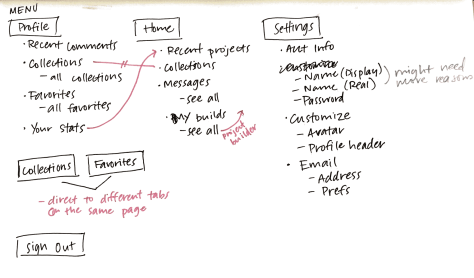 MENU
Profile
· Recent comments
· Collections
- all collections
· Favorites
- all favorites
· Your stats
Home
· Recent projects
· Collections
· Messages
- see all
· My builds
- see all
project builder
Settings
· Acct info
- Name (Display)
- Name (Real)
- Password
might need more reasons
· Customize
- Avatar
- Profile header
· Email
- Address
- Prefs
Collections
Favorites
- direct to different tabs
on the same page
Sign Out